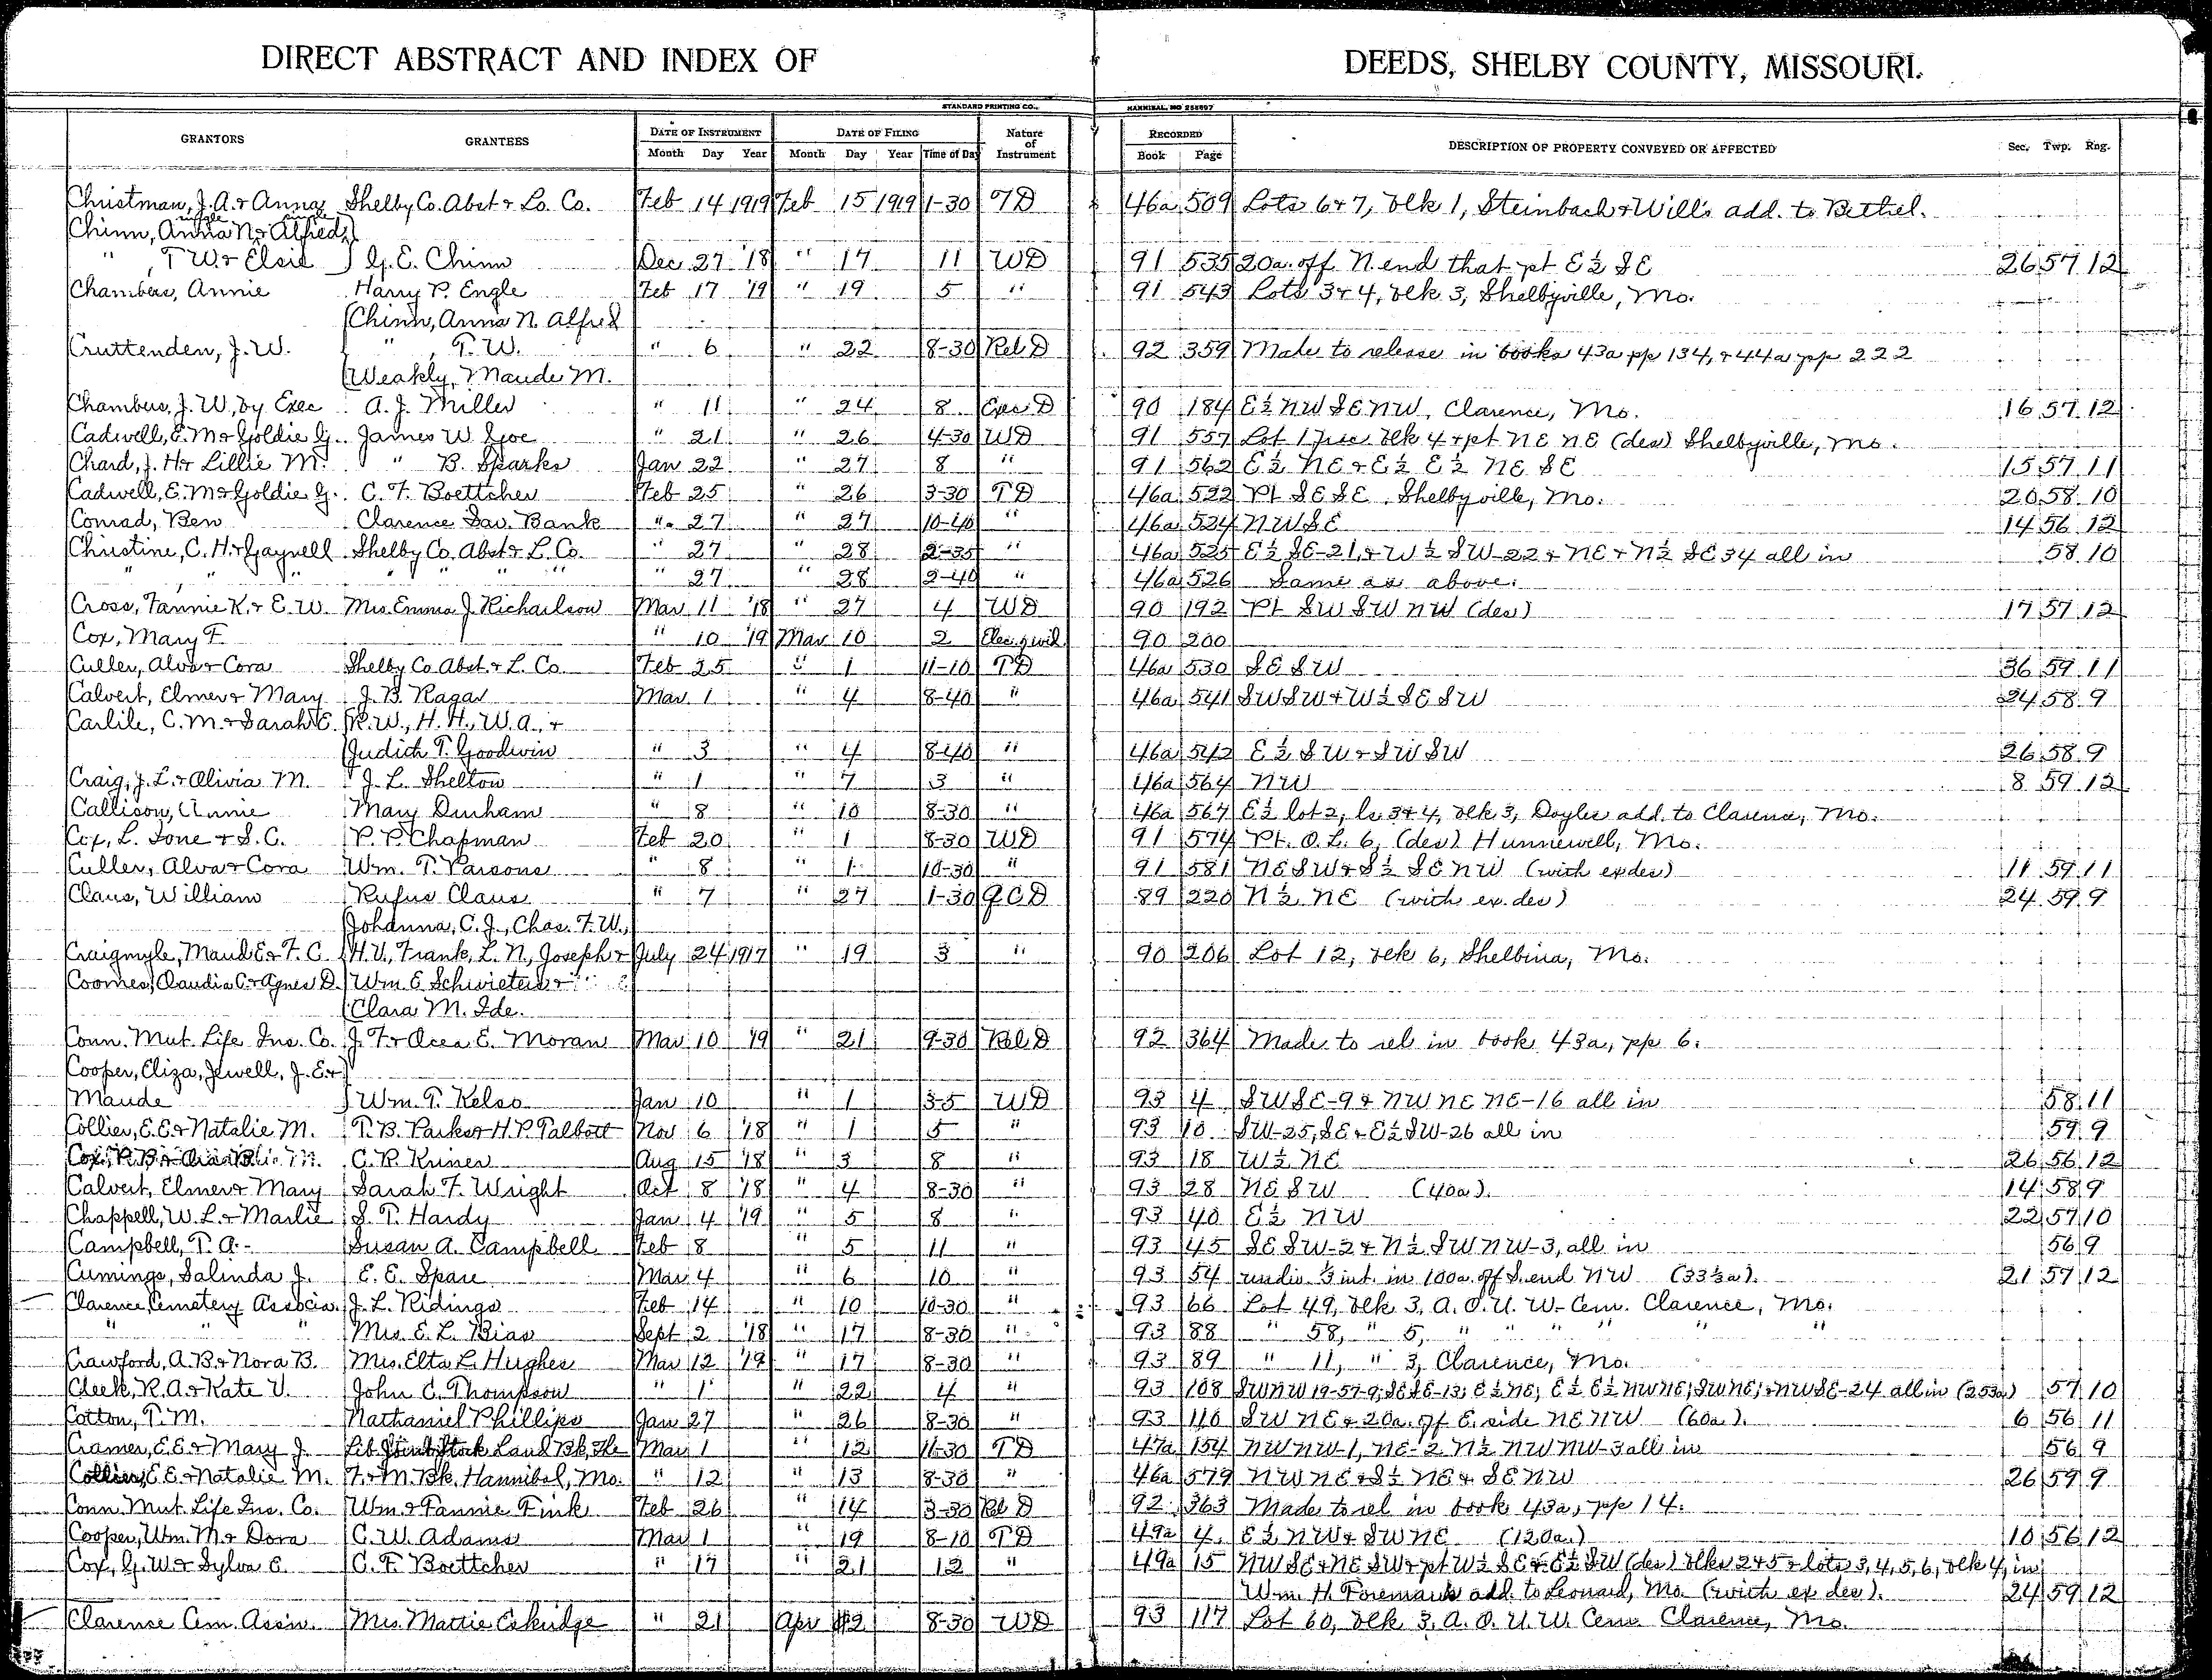 DIRECT ABSTRACT AND INDEX OF DEEDS, SHELBY COUNTY, MISSOURI.
STANDARD PRINTING CO., HANNIBAL, MO 258897
GRANTORS GRANTEES DATE OF INSTRUMENT DATE OF FILING Nature of Instrument RECORDED DESCRIPTION OF PROPERTY CONVEYED OR AFFECTED Sec. Twp. Rng.
Month Day Year Month Day Year Time of Day Book Page
Christman, J. A. & Anna Shelby Co. Abst & Lo. Co. Feb 14 1919 Feb 15 1919 1-30 TD 46a 509 Lots 6 & 7, blk 1, Steinbach & Will's add. to Bethel.
single single
Chinn, Anna N. & Alfred
" , T W. & Elsie G. E. Chinn Dec 27 '18 " 17 11 WD 91 535 20a. off N. end that pt E½ SE 26 57 12
Chambers, Annie Harry P. Engle Feb 17 '19 " 19 5 " 91 543 Lots 3 & 4, blk 3, Shelbyville, Mo.
Chinn, Anna N. Alfred
Cruttenden, J. W. " , T. W. " 6 " 22 8-30 Rel D 92 359 Made to release in books 43a pp 134, & 44a pp 222
Weakly, Maude M.
Chambers, J. W., by Exec A. J. Miller " 11 " 24 8 Exec D 90 184 E½ NW SE NW, Clarence, Mo. 16 57 12
Cadwell, E. M. & Goldie G. James W. " 21 " 26 4-30 WD 91 557 Lot 1 blk 4 & pt NE NE (des) Shelbyville, Mo.
Chard, J. H. & Lillie M. " B. Sparks Jan 22 " 27 8 " 91 562 E½ NE & E½ E½ NE SE 15 57 11
Cadwell, E. M. & Goldie G. C. F. Boettcher Feb 25 " 26 3-30 TD 46a 522 Pt SE SE Shelbyville, Mo. 20 58 10
Conrad, Ben Clarence Sav. Bank " 27 " 27 10-40 " 46a 524 NW SE 14 56 12
Christine, C. H. & Gaynell Shelby Co. Abst & L. Co. " 27 " 28 2-35 " 46a 525 E½ SE-21, & W½ SW-22 & NE & N½ SE 34 all in 58 10
" , " " " " " " " 27 " 28 2-40 " 46a 526 Same as above.
Cross, Fannie K. & E. W. Mrs Emma J. Richardson Mar 11 '18 " 27 4 WD 90 192 Pt SW SW NW (des) 17 57 12
Cox, Mary F. " 10 '19 Mar 10 2 Elec. of wid. 90 200
Culler, Alva & Cora Shelby Co Abst. & L. Co. Feb 25 " 1 11-10 TD 46a 530 SE SW 36 59 11
Calvert, Elmer & Mary J. B. Ragar Mar 1 " 4 8-40 " 46a 541 SW SW & W½ SE SW 24 58 9
Carlile, C. M. & Sarah E. R. W., H. H., W. A., &
Judith T. Goodwin " 3 " 4 8-40 " 46a 542 E½ SW & SW SW 26 58 9
Craig, J. L. & Olivia M. J. L. Shelton " 1 " 7 3 " 46a 564 NW 8 59 12
Callison, Annie Mary Durham " 8 " 10 8-30 " 46a 567 E½ lot 2, ls 3 & 4, blk 3, Doyles add. to Clarence, Mo.
Cox, L. Ione & S. C. P. P. Chapman Feb 20 " 1 8-30 WD 91 574 Pt. O. L. 6, (des) Hunnewell, Mo.
Culler, Alva & Cora Wm. T. Parsons " 8 " 1 10-30 " 91 581 NE SW & S½ SE NW (with ex des) 11 59 11
Claus, William Rufus Claus " 7 " 27 1-30 QCD 89 220 N½ NE (with ex. des) 24 59 9
Johanna, C. J., Chas. F. W.,
Craigmyle, Maud E. & F. C. H. V., Frank, L. N., Joseph & July 24 1917 " 19 3 " 90 206 Lot 12, blk 6, Shelbina, Mo.
Coomes, Claudia C. & Agnes D. Wm E Schwieters &
Clara M. Ide.
Conn. Mut. Life Ins. Co. J. F. & Ocea E. Moran Mar 10 '19 " 21 9-30 Rel D 92 364 Made to rel in book 43a, pp 6.
Cooper, Eliza, Jewell, J. E. &
Maude Wm. T. Kelso Jan 10 " 1 3-5 WD 93 4 SW SE-9 & NW NE NE-16 all in 58 11
Collier, E. E. & Natalie M. T. B. Parks & H. P. Talbott Nov 6 '18 " 1 5 " 93 10 SW-25, SE & E½ SW-26 all in 59 9
C. R. Kriner Aug 15 '18 " 3 8 " 93 18 W½ NE 26 56 12
Calvert, Elmer & Mary Sarah F. Wright Oct 8 '18 " 4 8-30 " 93 28 NE SW (40a). 14 58 9
Chappell, W. L. & Marlie S. T. Hardy Jan 4 '19 " 5 8 " 93 40 E½ NW 22 57 10
Campbell, T. A. Susan A. Campbell Feb 8 " 5 11 " 93 45 SE SW-2 & N½ SW NW-3, all in 56 9
Cumings, Salinda J. E. E. Spare Mar 4 " 6 10 " 93 54 undiv. ⅓ int. in 100a. off S. end NW (33⅓a). 21 57 12
Clarence Cemetery Associa. J. L. Ridings Feb 14 " 10 10-30 " 93 66 Lot 49, blk 3, A. O. U. W. Cem. Clarence, Mo.
" " " Mrs. E. L. Bias Sept 2 '18 " 17 8-30 " 93 88 " 58, " 5, " " " " "
Crawford, A. B. & Nora B. Mrs. Elta L. Hughes Mar 12 '19 " 17 8-30 " 93 89 " 11, " 3, Clarence, Mo.
Cleek, R. A. & Kate V. John C. Thompson " 1 " 22 4 " 93 108 SW NW 19-57-9; SE SE-13; E½ NE; E½ E½ NW NE; SW NE; & NW SE-24 all in (253a) 57 10
Cotton, T. M. Nathaniel Phillips Jan 27 " 26 8-30 " 93 110 SW NE & 20a. off E. side NE NW (60a). 6 56 11
Cramer, E. E. & Mary J. Lib. Joint Stock Land Bk, The Mar 1 " 12 11-30 TD 47a 154 NW NW-1, NE-2 N½ NW NW-3 all in 56 9
Collier, E. E. & Natalie M. F. & M. Bk. Hannibal, Mo. " 12 " 13 8-30 " 46a 579 NW NE & S½ NE & SE NW 26 59 9
Conn. Mut. Life Ins. Co. Wm. & Fannie Fink Feb 26 " 14 3-30 Rel D 92 363 Made to rel in book 43a, pp 14.
Cooper, Wm. M. & Dora C. W. Adams Mar 1 " 19 8-10 TD 49a 4 E½ NW & SW NE (120a.) 10 56 12
Cox, G. W. & Sylva E. C. F. Boettcher " 17 " 21 12 " 49a 15 NW SE & NE SW & pt W½ SE & E½ SW (des) blks 2 & 5 & lots 3, 4, 5, 6, blk 4, in
Wm. H. Foreman's add. to Leonard, Mo. (with ex des). 24 59 12
Clarence Cem. Assn. Mrs. Mattie Eskridge " 21 Apr 2 8-30 WD 93 117 Lot 60, blk 3, A. O. U. W. Cem. Clarence, Mo.